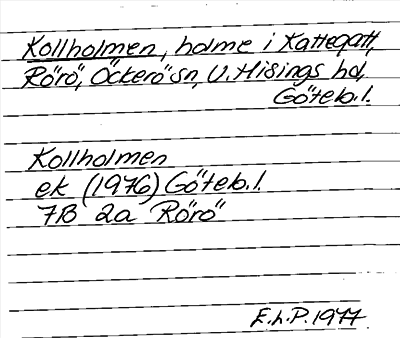 Kollholmen, holme i Kattegatt,
Rörö, Öckerö sn, V. Hisings hd,
Göteb.l.
Kollholmen
ek (1976) Göteb.l.
7B 2a Rörö
E.L.P. 1977